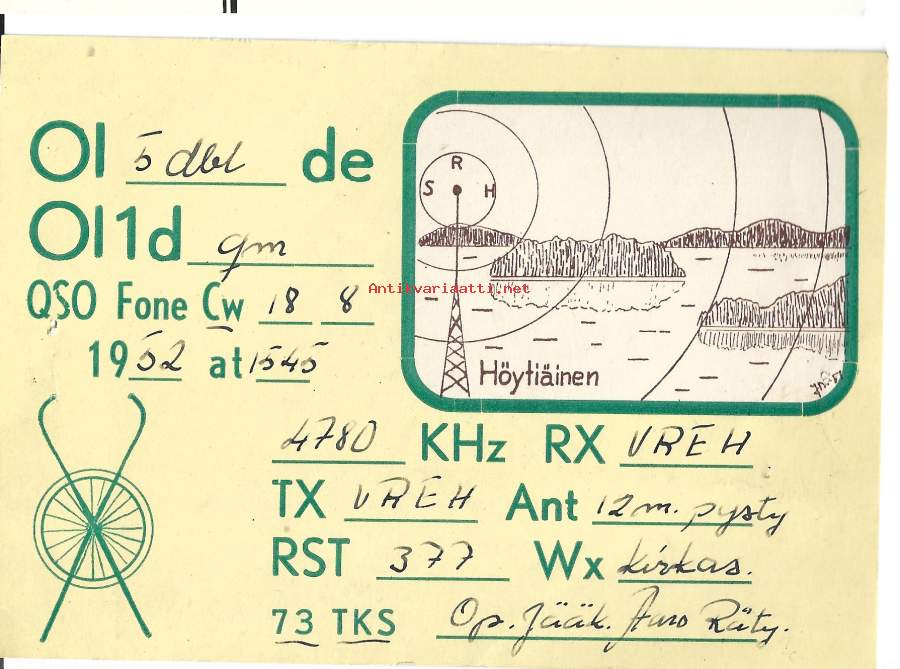 OI 5 dbl de
OI1d qm
QSO Fone Cw 18 8
1952 at 1545
R
S H
Antikvariaatti.net
Höytiäinen
4780 KHz RX VREH
TX VREH Ant 12m. pysty
RST 377 Wx kirkas.
73 TKS Op. Jääk. Auvo Räty.